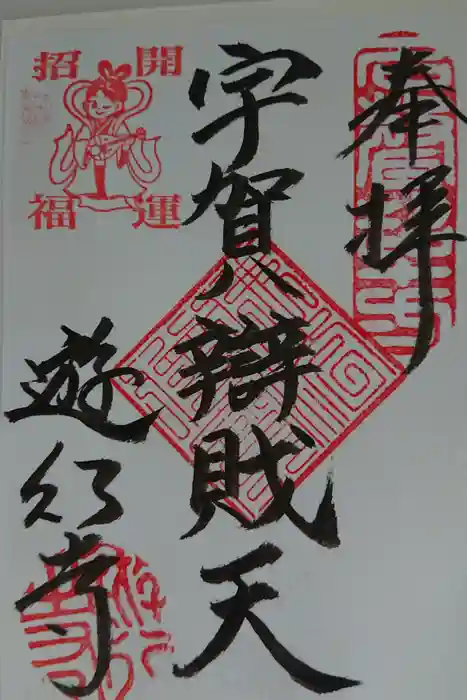 奉拝
宇賀弁財天
遊行寺
開運
招福